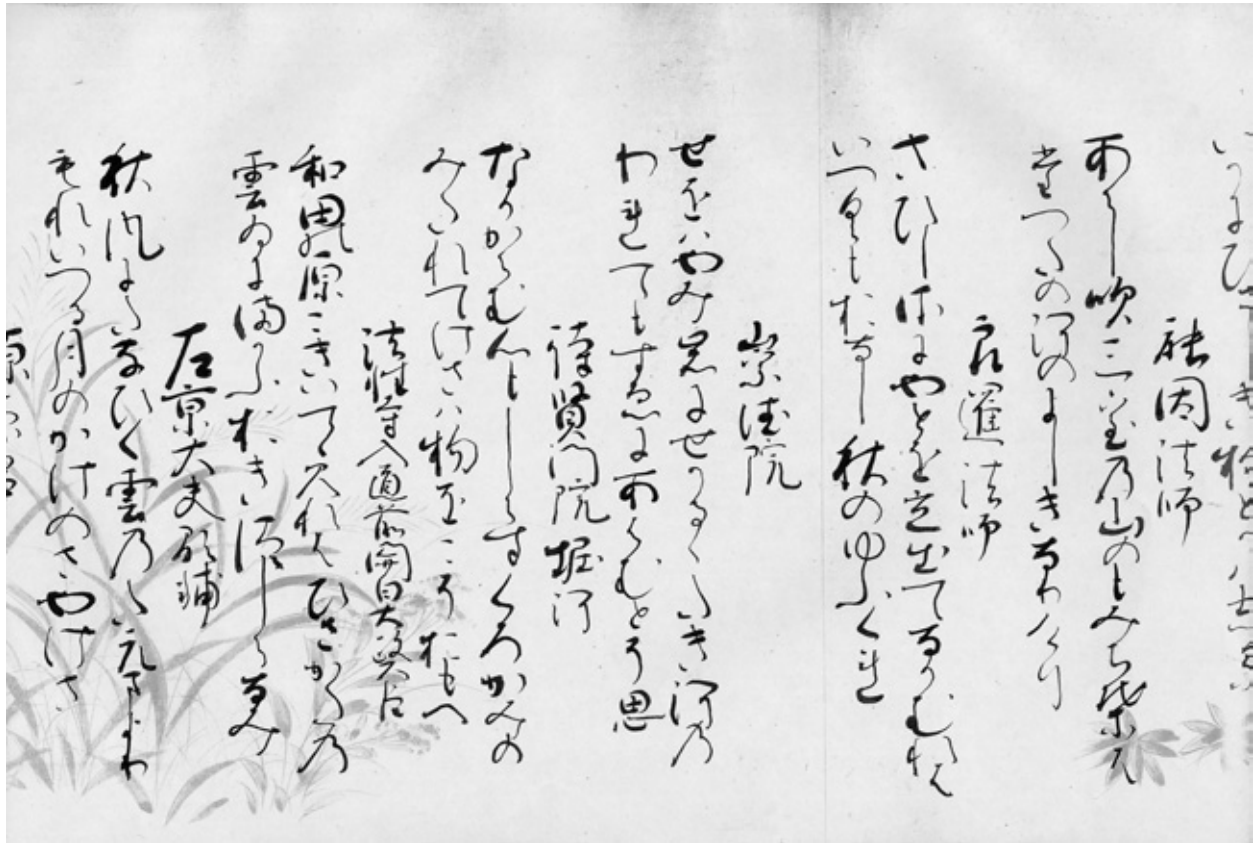 能因法師
あらし吹三室乃山のもみち葉ハ
たつたの河のにしきなりけり
良暹法師
さひしさにやとを立出てなかむれハ
いつくもおなし秋のゆふくれ
崇徳院
せをはやみ岩にせかるゝたき河乃
われてもすゑにあはむとそ思
待賢門院堀河
なかゝらむ心もしらすくろかみの
みたれてけさハ物をこそおもへ
法性寺入道前関白太政大臣
和田の原こきいてゝみれハひさかた乃
雲ゐにまかふおきつしらなみ
左京大夫顕輔
秋風にたなひく雲乃たえまより
もれいつる月のかけのさやけさ